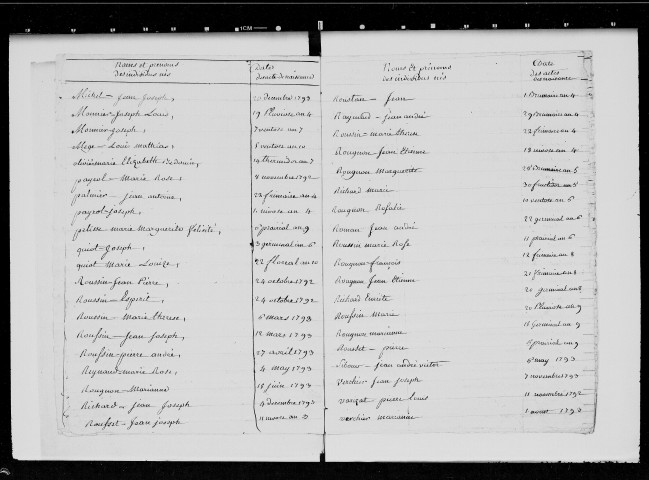 1CM
Noms et prénoms
des individus nés
dates
des actes de naissance
Michel - Jean Joseph, 20 decembre 1793
Monnier Joseph Louis, 19 Pluviose an 4
Monnier Joseph, 7 ventose an 7
Mege - Louis mathieu, ventose an 10
marie Elizabeth, 14 thermidor an 7
payrol - Marie Rose, 4 novembre 1792
palmier, jean antoine, 22 frimaire an 4
payrol - Joseph, 1 nivose an 4
pelisse marie Marguerite félicité, prairial an 9
quiot - Joseph, 3 germinal an 6
quiot Marie Louise, 22 floreal an 10
Roussin - Jean Pierre, 24 octobre 1792
Roussin - Esprit, 24 octobre 1792
Roussin - Marie therese, 6 mars 1793
Roussin - Jean Joseph, 12 mars 1793
Roussin - pierre andré, 27 avril 1793
Reynard marie Rose, 4 may 1793
Rougnon - Marianne 18 juin 1793
Richard - Jean Joseph 4 decembre 1793
Jean Joseph nivose an 3
Noms et prénoms
des individus nés
Date
des actes
de naissance
Roustan - Jean 1 Brumaire an 4
Raymond - jean andré 29 Brumaire an 4
Roussin - marie therese 22 frimaire an 4
Rougnon - Jean Etienne 13 nivose an 4
Rougnon Marguerite Brumaire an 5
Richard Marie 30 fructidor an 5
Rougnon Rosalie ventose an 6
Roman Jean andré 22 germinal an 6
Roussin marie Rose 11 prairial an 6
Rougnon - françois 12 frimaire an 8
Rougnon Jean Etienne 21 frimaire an 8
Richard 20 germinal an 8
Roussin Marie 20 Pluviose an 9
Rougnon marianne 11 Germinal an 9
Rousset - pierre prairial an 9
jean andré victor 6 may 1793
Verchier jean Joseph 7 novembre 1793
pierre louis 11 novembre 1792
verchier marianne 1 aoust 1793